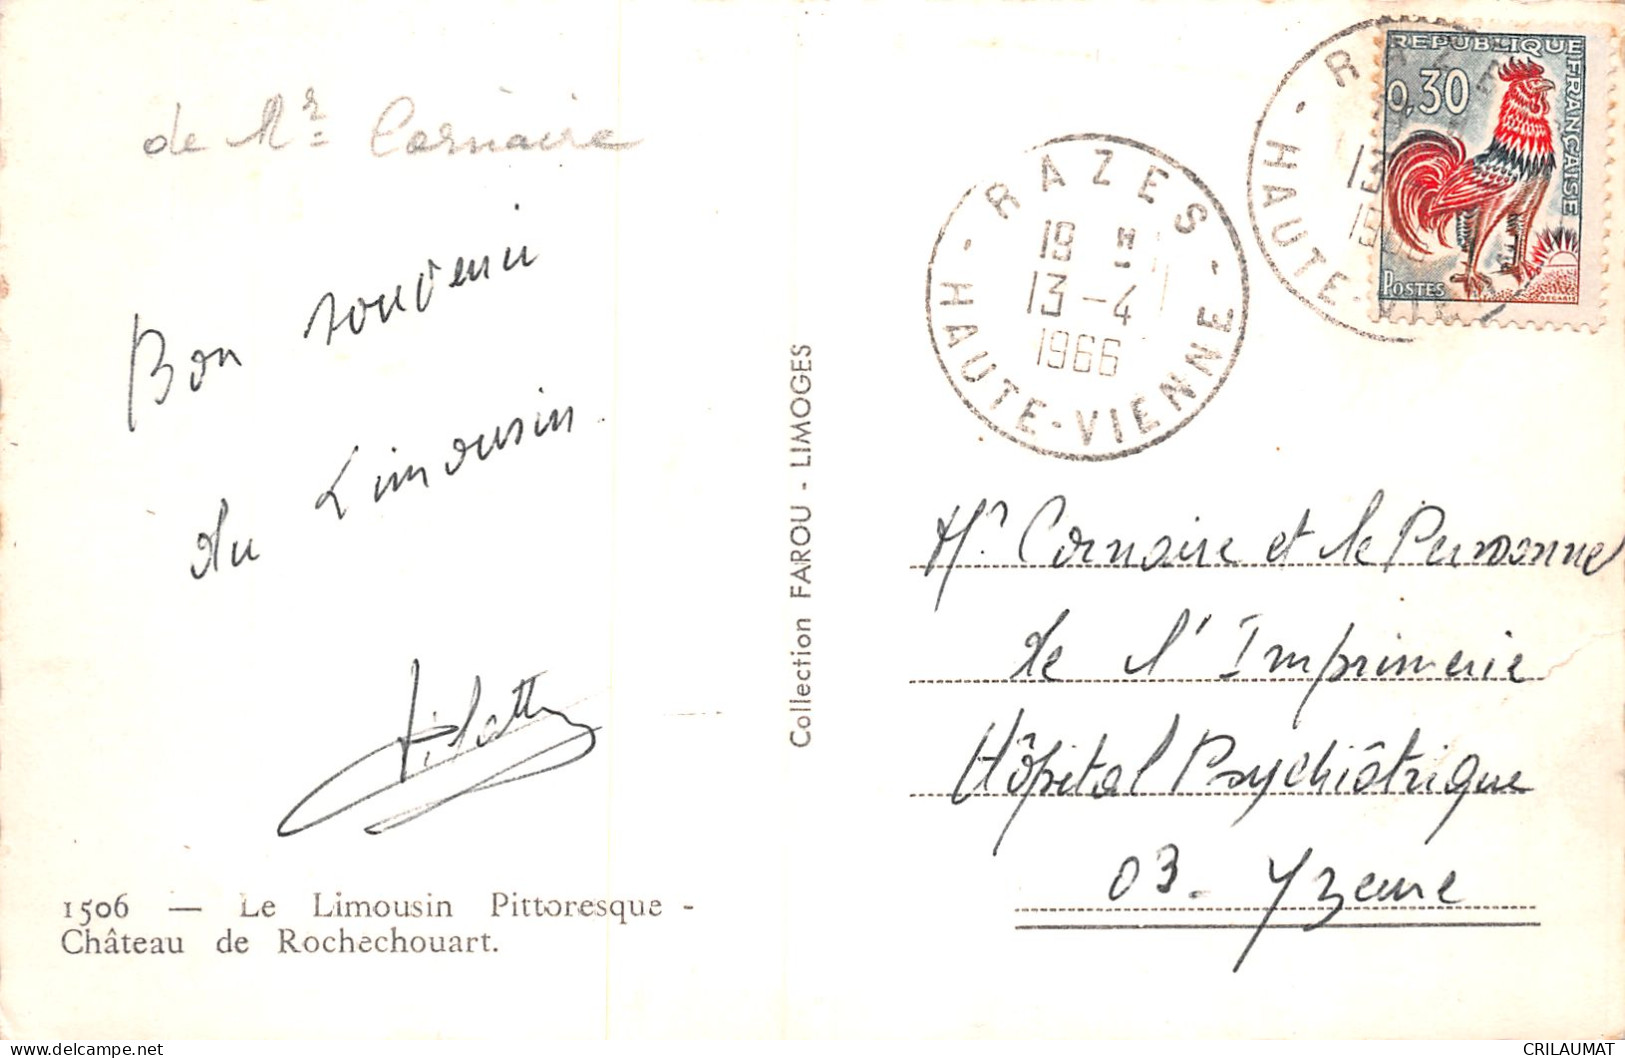 de Mr Cornaire
Bon souvenir
du Limousin.
1506 — Le Limousin Pittoresque -
Château de Rochechouart.
Collection FAROU - LIMOGES
- RAZES -
HAUTE-VIENNE
19 H
13 - 4
1966
HAUTE-VIE
13
REPUBLIQUE FRANÇAISE
0,30
POSTES
DECARIS
Mr. Cornaire et le Personnel
de l'Imprimerie
Hôpital Psychiâtrique
03 - Yzeure
CRILAUMAT